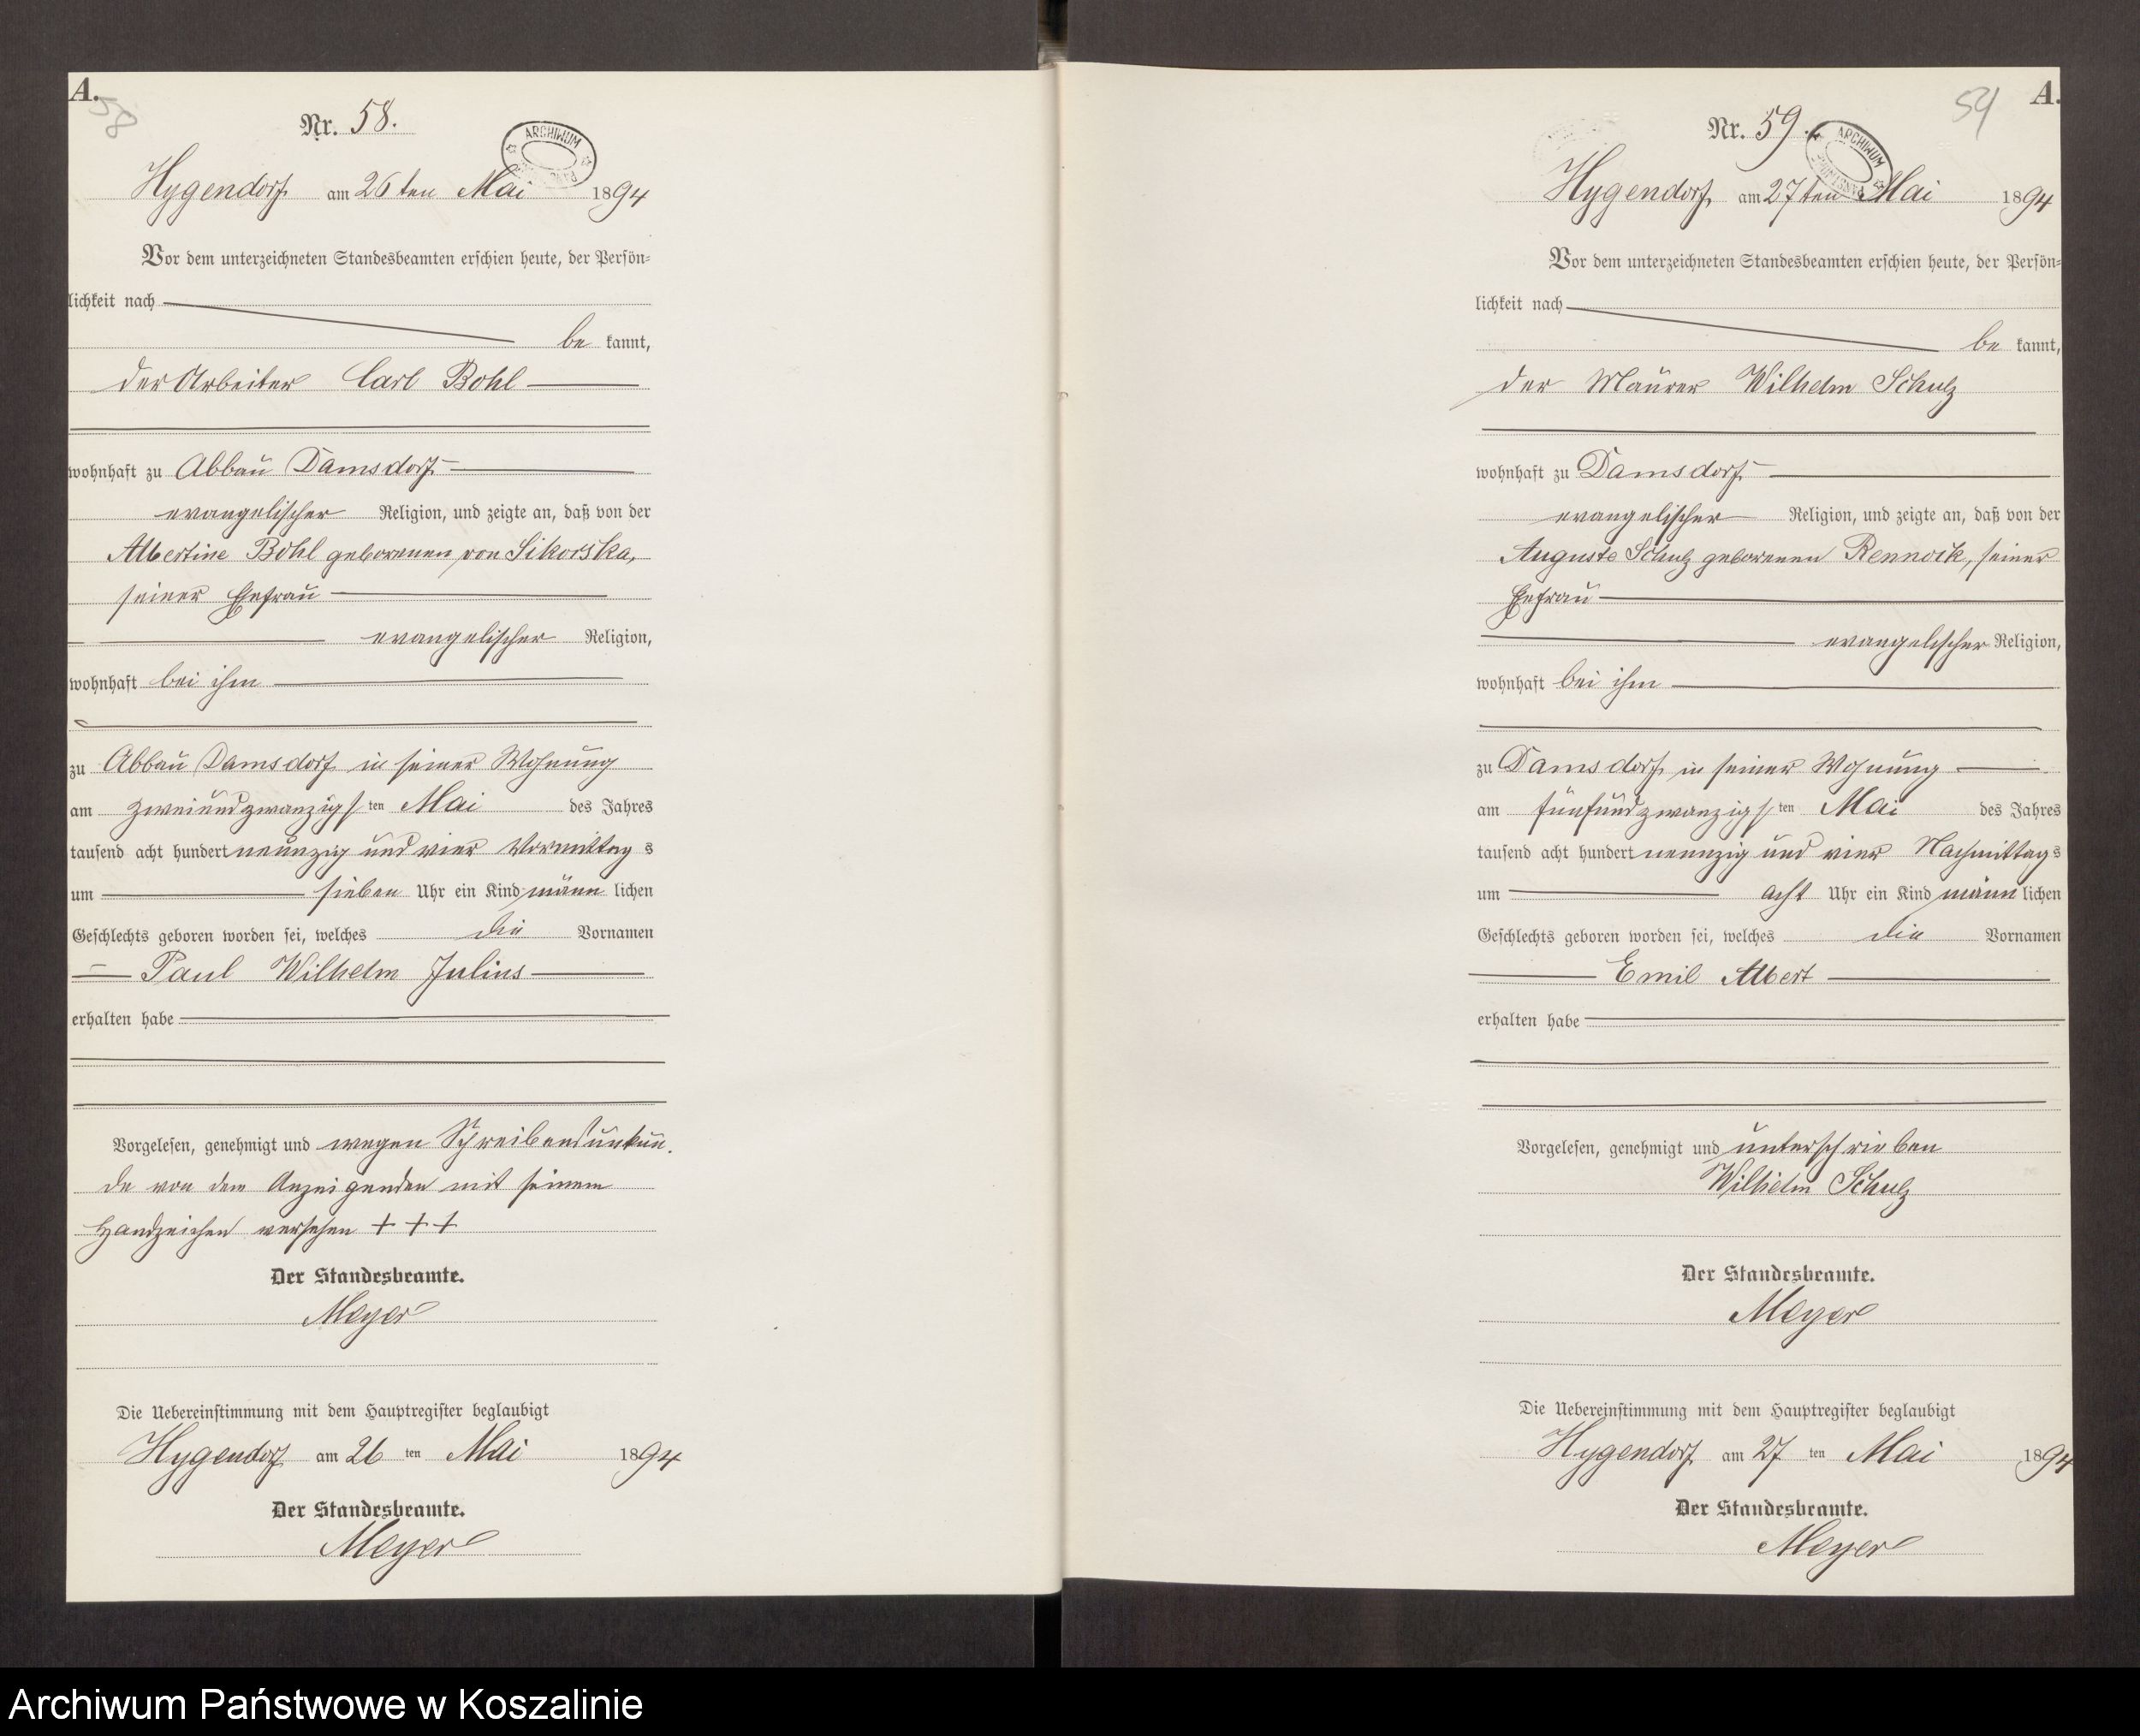 A.
58
Nr. 58.
ARCHIWUM
Hygendorf am 26ten Mai 1894
Vor dem unterzeichneten Standesbeamten erschien heute, der Persön-
lichkeit nach
be kannt,
der Arbeiter Carl Bohl
wohnhaft zu Abbau Damsdorf
evangelischer Religion, und zeigte an, daß von der
Albertine Bohl geborenen von Sikorska,
seiner Ehefrau
evangelischer Religion,
wohnhaft bei ihm
zu Abbau Damsdorf in seiner Wohnung
am zweiundzwanzigsten Mai des Jahres
tausend acht hundert neunzig und vier Vormittags
um sieben Uhr ein Kind männlichen
Geschlechts geboren worden sei, welches die Vornamen
Paul Wilhelm Julius
erhalten habe
Vorgelesen, genehmigt und wegen Schreibensunkun-
de von dem Anzeigenden mit seinem
Handzeichen versehen + + +
Der Standesbeamte.
Meyer
Die Uebereinstimmung mit dem Hauptregister beglaubigt
Hygendorf am 26 ten Mai 1894
Der Standesbeamte.
Meyer
A.
59
Nr. 59.
ARCHIWUM
Hygendorf am 27ten Mai 1894
Vor dem unterzeichneten Standesbeamten erschien heute, der Persön-
lichkeit nach
be kannt,
der Maurer Wilhelm Schulz
wohnhaft zu Damsdorf
evangelischer Religion, und zeigte an, daß von der
Auguste Schulz geborenen Rennoik, seiner
Ehefrau
evangelischer Religion,
wohnhaft bei ihm
zu Damsdorf in seiner Wohnung
am fünfundzwanzigsten Mai des Jahres
tausend acht hundert neunzig und vier Nachmittags
um acht Uhr ein Kind männlichen
Geschlechts geboren worden sei, welches die Vornamen
Emil Albert
erhalten habe
Vorgelesen, genehmigt und unterschrieben
Wilhelm Schulz
Der Standesbeamte.
Meyer
Die Uebereinstimmung mit dem Hauptregister beglaubigt
Hygendorf am 27 ten Mai 1894
Der Standesbeamte.
Meyer
Archiwum Państwowe w Koszalinie